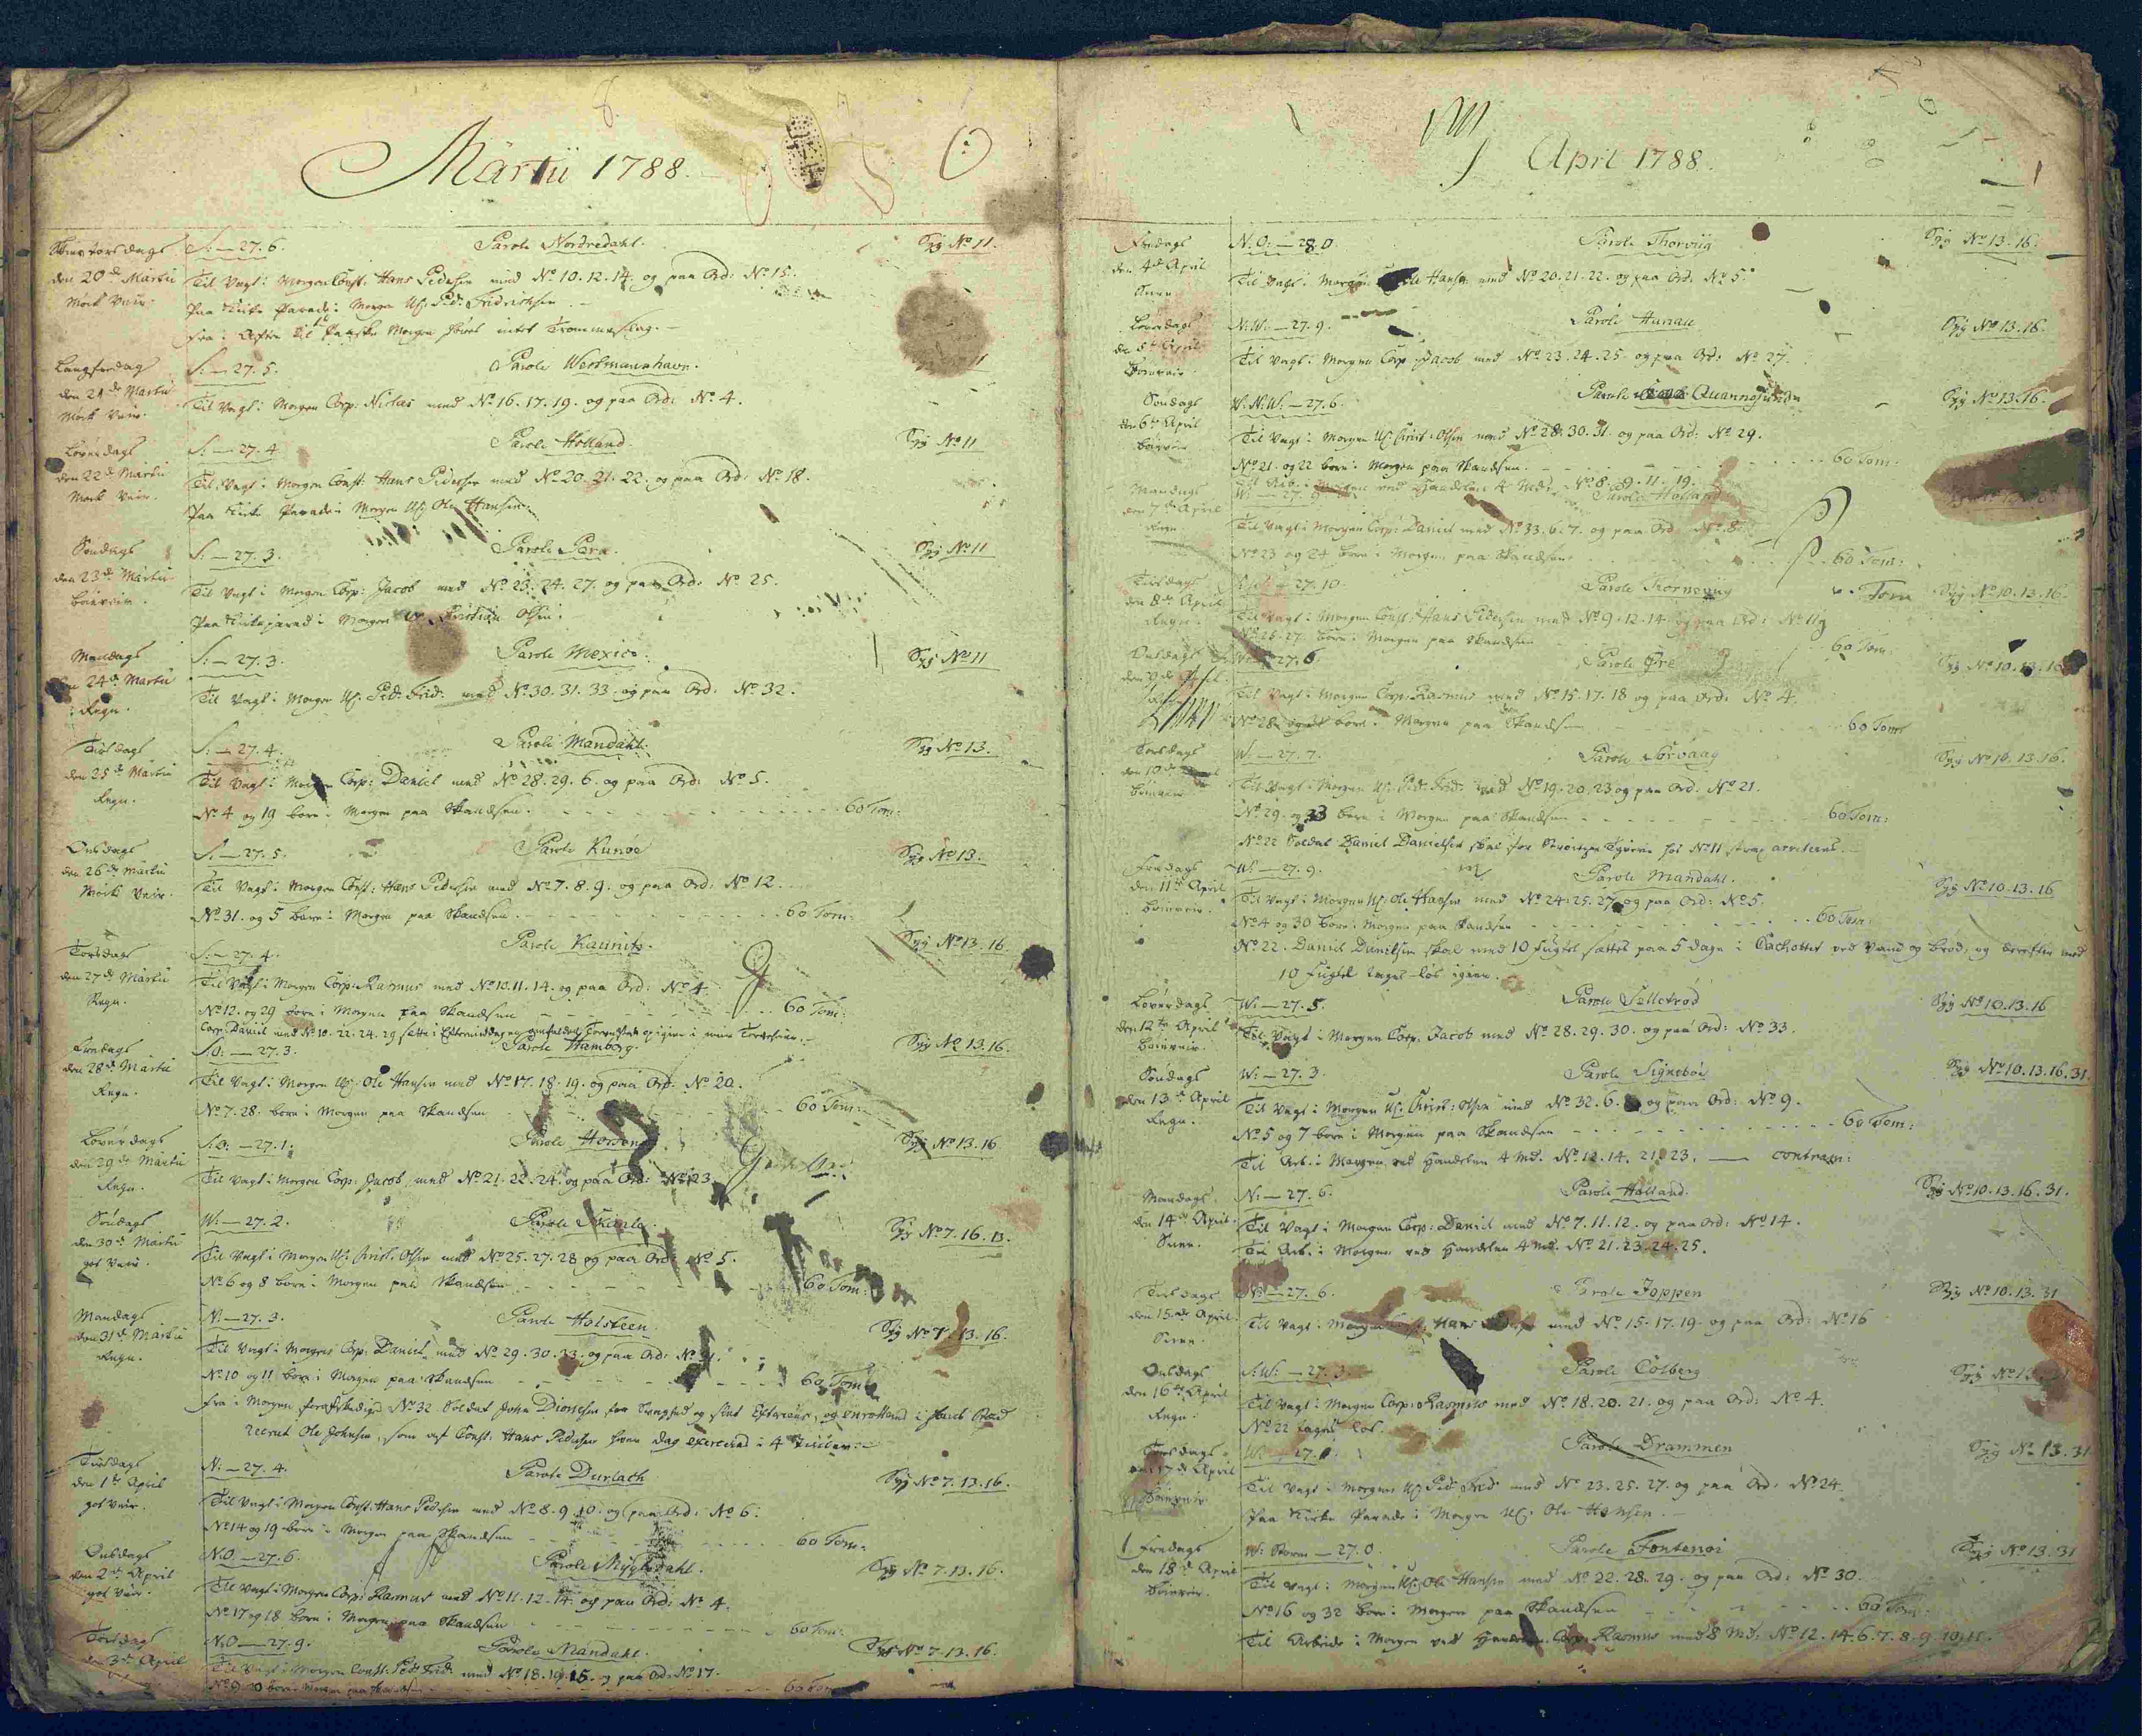 Martii 1788.
Skiertorsdags S: — 27. 6. Parole Nordredahl. Syg No 11.
den 20de Martii Til Vagt i Morgen Const: Hans Pedersen med No 10. 12. 14. og paa Ord: No 15.
Mork Veir. Paa Kirke Parade i Morgen
Fra i Aften til Paaske Morgen intet Trommeslag.
Langfredag S: — 27. 5. Parole Westmanhavn. 11
den 21de Martii Til Vagt i Morgen Corp: Niclas med No 16. 17. 19. og paa Ord: No 4.
Mork Veir.
Løverdags S: — 27. 4 Parole Holland. Syg No 11
den 22de Martii Til Vagt i Morgen Const: Hans Pedersen med No 20. 21. 22. og paa Ord: No 18.
Mork Veir. Paa Kirke Parade i Morgen UC Ole Hansen.
Søndags S: — 27. 3. Parole Para. Syg No 11
den 23de Martii Til Vagt i Morgen Corp: Jacob med No 23. 24. 27. og paa Ord: No 25.
Paa Kirkeparade i Morgen UC Christian Olsen.
Mandags S: — 27. 3. Parole Mexico. Syg No 11
den 24de Martii Til Vagt i Morgen UC: Ped: Frid: med No 30. 31. 33. og paa Ord: No 32.
Regn.
Tirsdags S: — 27. 4. Parole Mandahl. Syg No 13.
den 25de Martii Til Vagt i Morgen Corp: Daniel med No 28. 29. 6. og paa Ord: No 5.
Regn. No 4 og 19 bære i Morgen paa Skandsen. 60 Torv:
Onsdags S: — 27. 5. Parole Kunøe Syg No 13.
den 26de Martii Til Vagt i Morgen Const: Hans Pedersen med No 7. 8. 9. og paa Ord: No 12.
Mork Veir. No 31. og 5 bære i Morgen paa Skandsen. 60 Torv:
Torsdags S: — 27. 4. Parole Kaunitz. Syg No 13. 16.
den 27de Martii Til Vagt i Morgen Corp: Rasmus med No 10. 11. 14. og paa Ord: No 4.
Regn. No 12. og 29 bære i Morgen paa Skandsen 60 Torv:
Corp: Daniel med No 10. 22. 24. 29 sætte i Eftermiddag
Fredags S:O: — 27. 3. Parole Hamborg. Syg No 13. 16.
den 28de Martii Til Vagt i Morgen UC: Ole Hansen med No 17. 18. 19. og paa Ord: No 20.
Regn. No 7. 28. bære i Morgen paa Skandsen 60 Torv:
Løverdags S:O: — 27. 1. Parole Syg No 13. 16
den 29de Martii Til Vagt i Morgen Corp: Jacob med No 21. 22. 24. og paa Ord: No 23.
Regn.
Søndags W: — 27. 2. Parole Skaale. Syg No 7. 16. 13.
den 30de Martii Til Vagt i Morgen UC: Christ: Olsen med No 25. 27. 28 og paa Ord: No 5.
got Veir. No 6 og 8 bære i Morgen paa Skandsen 60 Torv:
Mandags N: — 27. 3. Parole Holsteen. Syg No 7. 13. 16.
den 31de Martii Til Vagt i Morgen Corp: Daniel med No 29. 30. 33. og paa Ord: No 31.
Regn. No 10 og 11 bære i Morgen paa Skandsen 60 Torv:
Fra i Morgen forafskediges No 32 Soldat Joen Dionesen for Svaghed og og enrolleres i hans Sted
recrut Ole Johnsen, som af Const: Hans Pedersen hver Dag exerceres i 4
Tirsdags N: — 27. 4. Parole Durlach Syg No 7. 13. 16.
den 1ste April Til Vagt i Morgen Const: Hans Pedersen med No 8. 9. 10. og paa Ord: No 6.
got Veir. No 14 og 19 bære i Morgen paa Skandsen 60 Torv:
Onsdags N:O. — 27. 6. Parole Myglidahl. Syg No 7. 13. 16.
den 2den April Til Vagt i Morgen Corp: Rasmus med No 11. 12. 14. og paa Ord: No 4.
got Veir. No 17 og 18 bære i Morgen paa Skandsen 60 Torv:
Torsdags N:O — 27. 9. Parole Mandahl. Syg No 7. 13. 16.
den 3de April Til Vagt i Morgen Const: Ped: Frid: med No 18. 19. 15. og paa Ord: No 17.
bære i Morgen paa Skandsen 60 Torv
April 1788.
Fredags N:O: — 28. 0. Parole Thorviig Syg No 13. 16.
den 4de April Til Vagt i Morgen Ole Hansen med No 20. 21. 22. og paa Ord: No 5.
Løverdags N:W: — 27. 9. Parole Syg No 13. 16.
den 5te April Til Vagt i Morgen Corp: Jacob med No 23. 24. 25. og paa Ord: No 27.
Søndags W:N:W: — 27. 6. Parole Quannesund Syg No 13. 16.
den 6te April Til Vagt i Morgen UC: Christ: Olsen med No 28. 30. 31. og paa Ord: No 29.
No 21. og 22 bære i Morgen paa Skandsen. 60 Torv:
Til Arb: i Morgen ved Handelen 4 Md: No 8. 9. 11. 19.
Mandags W: — 27. 9 Parole Holland
den 7de April Til Vagt i Morgen Corp: Daniel med No 33. 6. 7. og paa Ord: No 8.
Regn No 23 og 24 bære i Morgen paa Skandsen 60 Torv:
Tirsdags — 27. 10. Parole Kornevug Syg No 10. 13. 16.
den 8de April Til Vagt i Morgen Const: Hans Pedersen med No 9. 12. 14 og paa Ord: No 11
Regn. No 25. 27. bære i Morgen paa Skandsen 60 Torv:
Onsdags W: — 27. 6. Parole Øre Syg No 10. 13. 16
Til Vagt i Morgen Corp: Rasmus med No 15. 17. 18 og paa Ord: No 4.
No 28 bære i Morgen paa Skandsen 60 Torv
Torsdags W: — 27. 7. Parole Sørvaag Syg No 10. 13. 16.
den 10de Til Vagt i Morgen UC: Ped: Frid: med No 19. 20. 23 og paa Ord: No 21.
No 29. og 33 bære i Morgen paa Skandsen 60 Torv:
No 22 Soldat Daniel Danielsen skal for Tyverie hos No 11 strax arresteres.
Fredags W: — 27. 9. Parole Mandahl. Syg No 10. 13. 16
den 11te April Til Vagt i Morgen UC: Ole Hansen med No 24. 25. 27. og paa Ord: No 5.
No 4 og 30 bære i Morgen paa Skandsen 60 Torv:
No 22. Daniel Danielsen skal med 10 Fugtel sættes paa 5 Dage i Cachottet ved Vand og Brød, og derefter med
10 Fugtel løs igien.
Løverdags W: — 27. 5. Parole Selletrød Syg No 10. 13. 16
den 12te April Til Vagt i Morgen Corp: Jacob med No 28. 29. 30. og paa Ord: No 33.
Søndags W: — 27. 3. Parole Signebøe Syg No 10. 13. 16. 31.
den 13de April Til Vagt i Morgen UC: Christ: Olsen med No 32. 6. 8 og paa Ord: No 9.
Regn. No 5 og 7 bære i Morgen paa Skandsen 60 Torv:
Til Arb. i Morgen ved Handelen 4 Md. No 12. 14. 21. 23. —
Mandags N: — 27. 6. Parole Holland. Syg No 10. 13. 16. 31.
den 14de April. Til Vagt i Morgen Corp: Daniel med No 7. 11. 12. og paa Ord: No 14.
Snee. Til Arb. i Morgen ved Handelen 4 Md. No 21. 23. 24. 25.
Tirsdags N: — 27. 6. Parole Joppen Syg No 10. 13. 31
den 15de April Til Vagt i Morgen Const: Hans Pedersen med No 15. 17. 19. og paa Ord: No 16
Snee.
Onsdags S:W: — 27. 3. Parole Colberg Syg No 13. 31
den 16de April Til Vagt i Morgen Corp: Rasmus med No 18. 20. 21. og paa Ord: No 4.
Regn. No 22 løs.
Torsdags W: — 27. 0. Parole Drammen Syg No 13. 31
den 17de April Til Vagt i Morgen UC: Ped: Frid: med No 23. 25. 27. og paa Ord: No 24.
Paa Kirke Parade i Morgen UC: Ole Hansen.
Fredags W: Storm — 27. 0. Parole Fontenoi Syg No 13. 31
den 18de April Til Vagt i Morgen UC: Ole Hansen med No 22. 28. 29. og paa Ord: No 30.
No 16 og 32 bære i Morgen paa Skandsen 60 Torv:
Til Arbeide i Morgen ved Handelen Corp: Rasmus med 8 Md: No 12. 14. 6. 7. 8. 9. 10. 11.